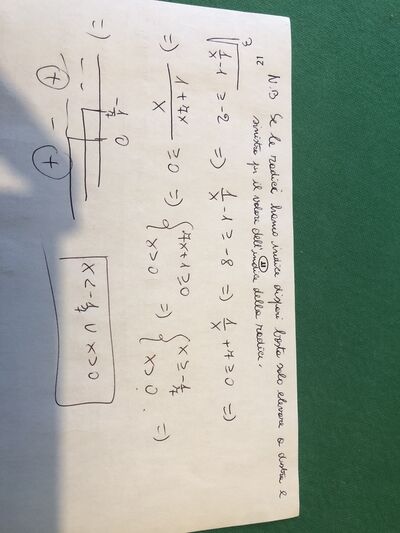 N.B Se le radici hanno indice dispari basta solo elevare a destra e
sinistra per il valore dell'indice della radice.
21
∛(1/x - 1) ≥ -2 => 1/x - 1 ≥ -8 => 1/x + 7 ≥ 0 =>
=> (1+7x)/x ≥ 0 => { 7x+1 ≥ 0 x > 0 => { x ≥ -1/7 x > 0 . =>
=> -1/7 0
+ - +
x < -1/7 ∪ x > 0